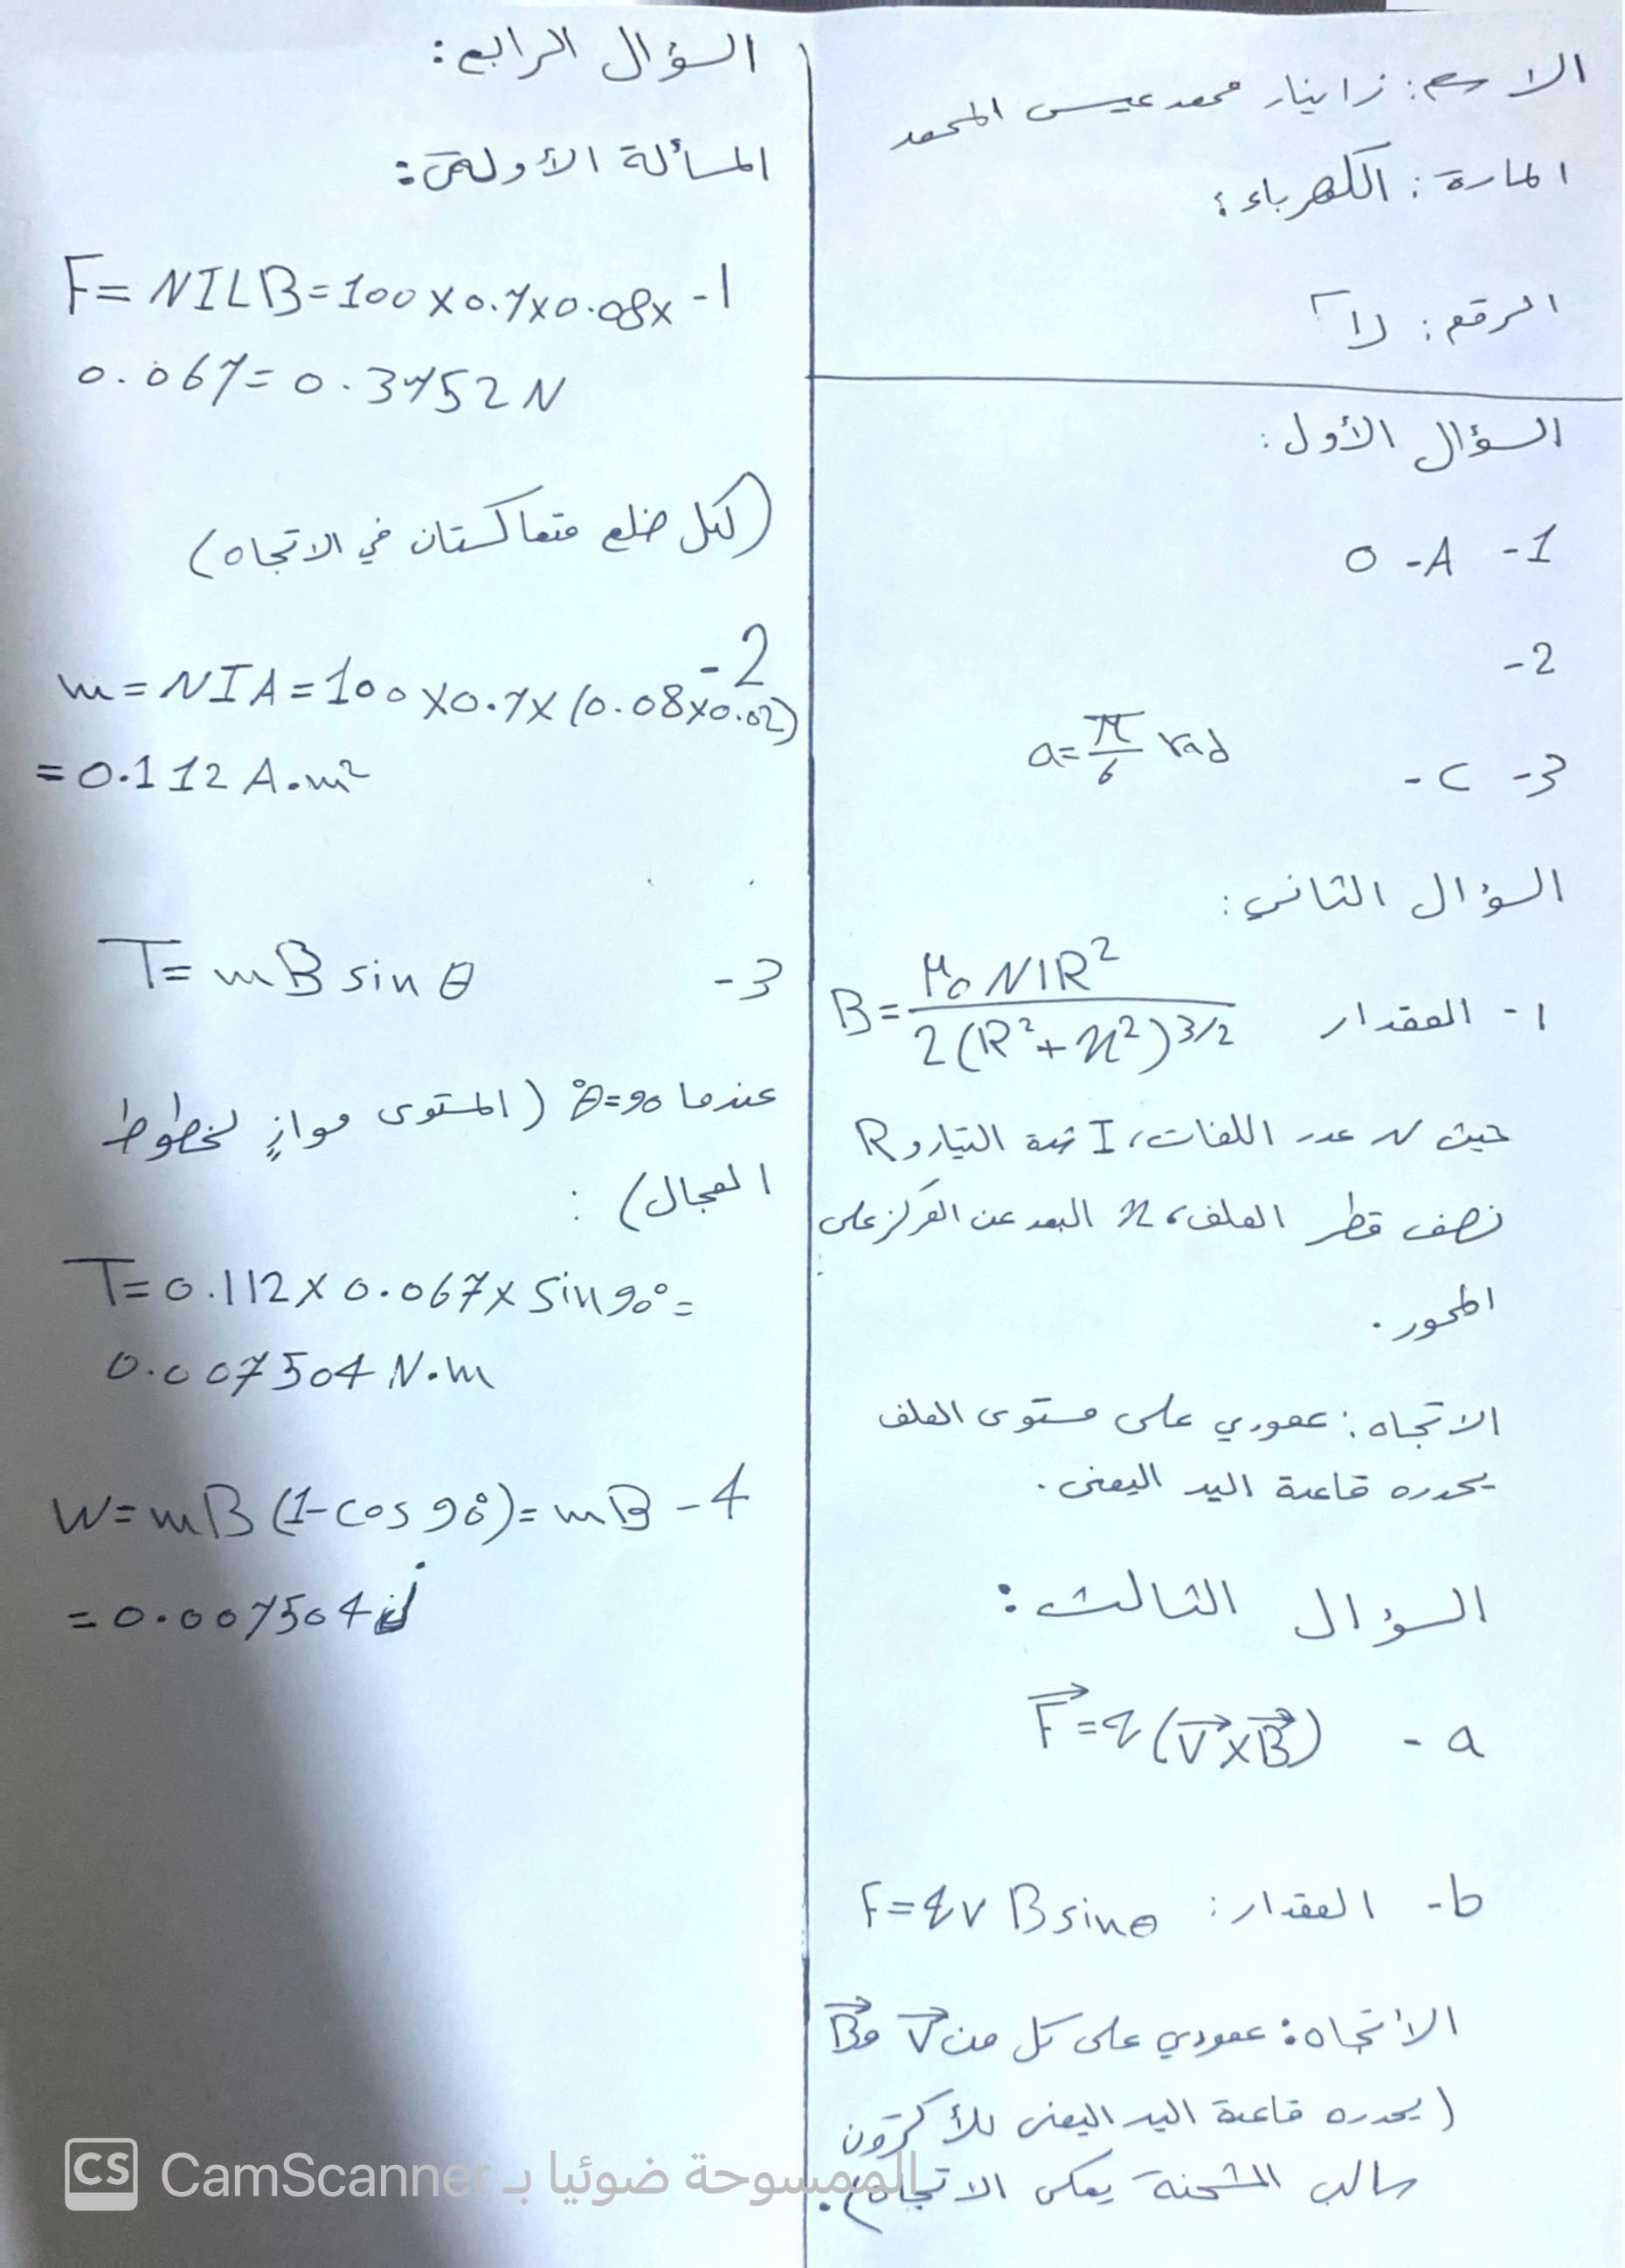 الاسم: زاينار محمد عيسى المحمد
المادة: الكهرباء:
الرقم:
السؤال الأول:
1- A- 0
2-
3- C- a=π/6 rad
السؤال الثاني:
1- المقدار B= μ₀NIR² / 2(R²+x²)^3/2
حيث N عدد اللفات، I شدة التيار و R
نصف قطر الملف، x البعد عن المركز على
المحور.
الاتجاه: عمودي على مستوى الملف
يحدده قاعدة اليد اليمنى.
السؤال الثالث:
a- F⃗=q(V⃗×B⃗)
b- المقدار: F=qvBsinθ
الاتجاه: عمودي على كل من V⃗ و B⃗
(يحدده قاعدة اليد اليمنى للألكترون
سالب الشحنة يعكس الاتجاه).
السؤال الرابع:
المسألة الأولى:
1- F=NILB=100×0.7×0.08×
0.067=0.3752N
(لكل ضلع متعاكستان في الاتجاه)
2-
m=NIA=100×0.7×(0.08×0.02)
=0.112 A.m²
3- T=mB sin θ
عندما θ=90° (المستوى موازٍ لخطوط
المجال):
T=0.112×0.067×sin90°=
0.007504 N.m
4- W=mB(1-cos90°)=mB
=0.007504 j
CS CamScanner الممسوحة ضوئيا بـ